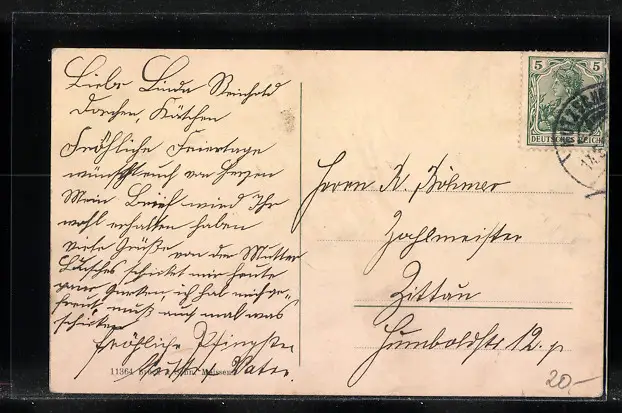 Liebe Linda Reinhold
Dorchen, Kätchen
Fröhliche Feiertage
wünscht euch von Herzen
Mein Brief wird Ihr
wohl erhalten haben
viele Grüße von der Mutter
schicket mir heute
ganz Gurken, ich hab mich ge-
freut, muß auch mal was
schicken
Fröhliche Pfingsten
Vater.
11364
Meissen
5 5
DEUTSCHES REICH
Herrn K. Böhmer
Zahlmeister
Zittau
Humboldtstr 12. p
20,-